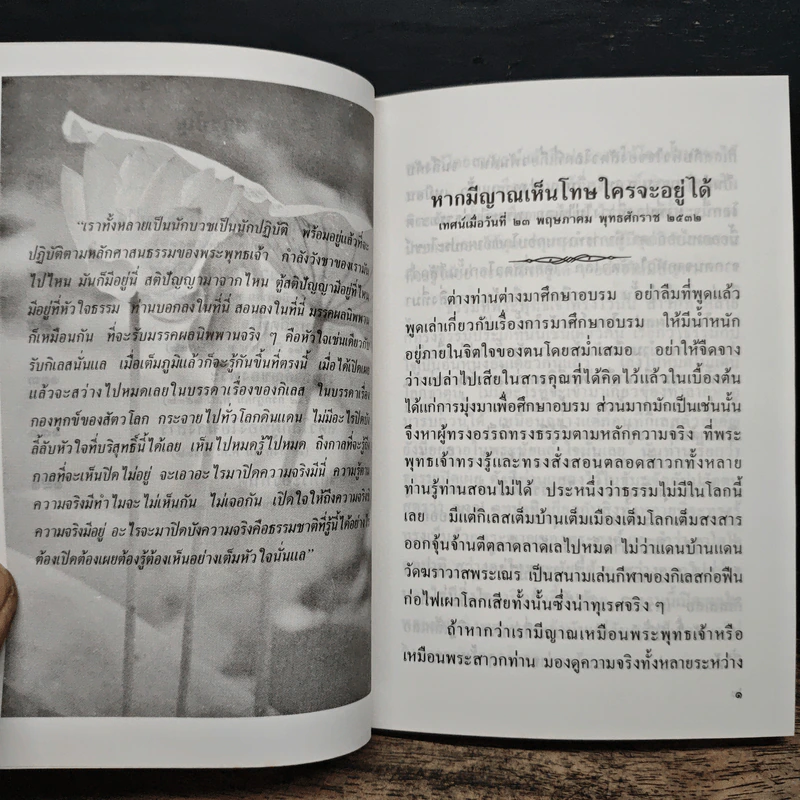 “เราทั้งหลายเป็นนักบวชเป็นนักปฏิบัติ พร้อมอยู่แล้วที่จะ
ปฏิบัติตามหลักศาสนธรรมของพระพุทธเจ้า กำลังวังชาของเรามัน
ไปไหน มันก็มีอยู่นี่ สติปัญญามาจากไหน ตู้สติปัญญามีอยู่ที่ไหน
มีอยู่ที่หัวใจธรรม ท่านบอกลงในที่นี่ สอนลงในที่นี่ มรรคผลนิพพาน
ก็เหมือนกัน ที่จะรับมรรคผลนิพพานจริง ๆ คือหัวใจเช่นเดียวกับ
รับกิเลสนั่นแล เมื่อเต็มภูมิแล้วก็จะรู้กันขึ้นที่ตรงนี้ เมื่อได้เปิดเผย
แล้วจะสว่างไปหมดเลยในบรรดาเรื่องของกิเลส ในบรรดาเรื่อง
กองทุกข์ของสัตวโลก กระจายไปทั่วโลกดินแดน ไม่มีอะไรปิดบัง
ลี้ลับหัวใจที่บริสุทธิ์นี้ได้เลย เห็นไปหมดรู้ไปหมด ถึงกาลที่จะรู้ถึง
กาลที่จะเห็นปิดไม่อยู่ จะเอาอะไรมาปิดความจริงมีนี่ ความรู้ตาม
ความจริงมีทำไมจะไม่เห็นกัน ไม่เจอกัน เปิดใจให้ถึงความจริงซิ
ความจริงมีอยู่ อะไรจะมาปิดบังความจริงคือธรรมชาติที่รู้นี้ได้อย่างไร
ต้องเปิดต้องเผยต้องรู้ต้องเห็นอย่างเต็มหัวใจนั่นแล”
หากมีญาณเห็นโทษใครจะอยู่ได้
เทศน์เมื่อวันที่ ๒๓ พฤษภาคม พุทธศักราช ๒๕๓๒
ต่างท่านต่างมาศึกษาอบรม อย่าลืมที่พูดแล้ว
พูดเล่าเกี่ยวกับเรื่องการมาศึกษาอบรม ให้มีน้ำหนัก
อยู่ภายในจิตใจของตนโดยสม่ำเสมอ อย่าให้จืดจาง
ว่างเปล่าไปเสียในสารคุณที่ได้คิดไว้แล้วในเบื้องต้น
ได้แก่การมุ่งมาเพื่อศึกษาอบรม ส่วนมากมักเป็นเช่นนั้น
จึงหาผู้ทรงอรรถทรงธรรมตามหลักความจริง ที่พระ
พุทธเจ้าทรงรู้และทรงสั่งสอนตลอดสาวกทั้งหลาย
ท่านรู้ท่านสอนไม่ได้ ประหนึ่งว่าธรรมไม่มีในโลกนี้
เลย มีแต่กิเลสเต็มบ้านเต็มเมืองเต็มโลกเต็มสงสาร
ออกจุ้นจ้านตีตลาดลาดเลไปหมด ไม่ว่าแดนบ้านแดน
วัดฆราวาสพระเณร เป็นสนามเล่นกีฬาของกิเลสก่อฟืน
ก่อไฟเผาโลกเสียทั้งนั้นซึ่งน่าทุเรศจริง ๆ
ถ้าหากว่าเรามีญาณเหมือนพระพุทธเจ้าหรือ
เหมือนพระสาวกท่าน มองดูความจริงทั้งหลายระหว่าง
๑